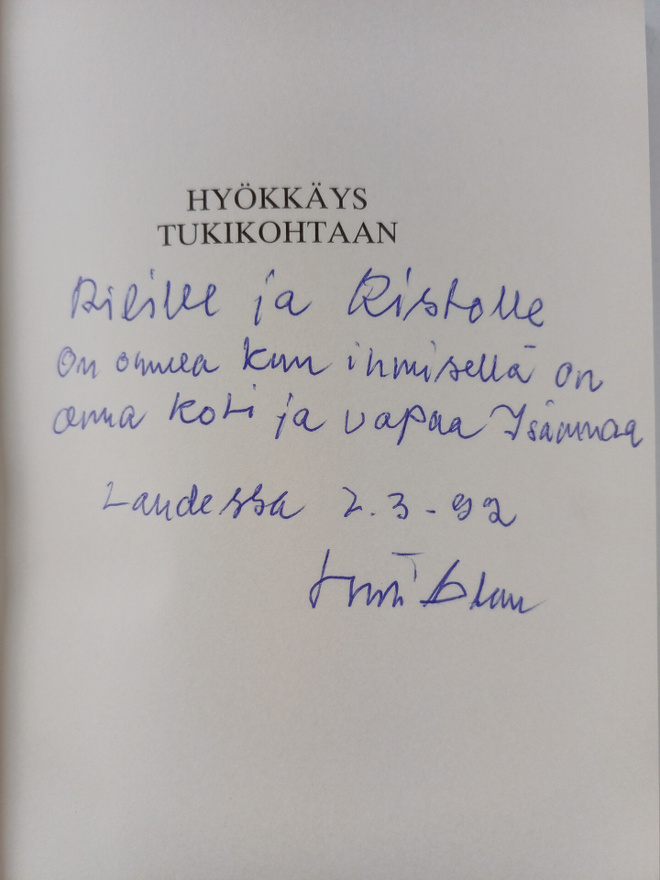 HYÖKKÄYS
TUKIKOHTAAN
ja Ristolle
On onnea kun ihmisellä on
oma koti ja vapaa Isänmaa
2.3-92